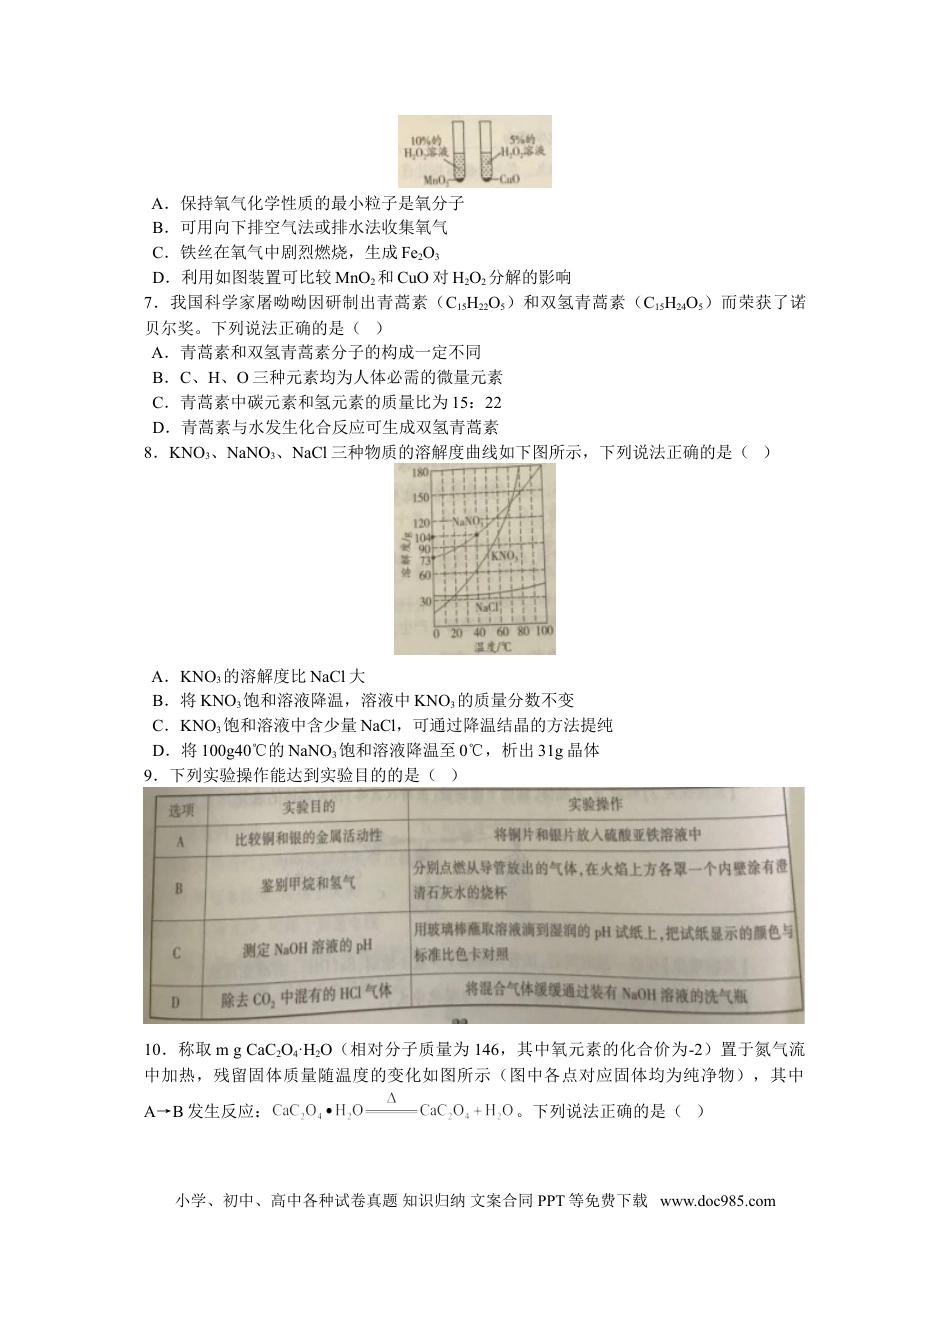 10%的
H₂O₂溶液
5%的
H₂O₂溶液
MnO₂
CuO
A．保持氧气化学性质的最小粒子是氧分子
B．可用向下排空气法或排水法收集氧气
C．铁丝在氧气中剧烈燃烧，生成 Fe₂O₃
D．利用如图装置可比较 MnO₂ 和 CuO 对 H₂O₂ 分解的影响
7．我国科学家屠呦呦因研制出青蒿素（C₁₅H₂₂O₅）和双氢青蒿素（C₁₅H₂₄O₅）而荣获了诺
贝尔奖。下列说法正确的是（ ）
A．青蒿素和双氢青蒿素分子的构成一定不同
B．C、H、O 三种元素均为人体必需的微量元素
C．青蒿素中碳元素和氢元素的质量比为 15：22
D．青蒿素与水发生化合反应可生成双氢青蒿素
8．KNO₃、NaNO₃、NaCl 三种物质的溶解度曲线如下图所示，下列说法正确的是（ ）
溶解度/g
180
150
120
104
90
73
60
30
NaNO₃
KNO₃
NaCl
0 20 40 60 80 100
温度/℃
A．KNO₃ 的溶解度比 NaCl 大
B．将 KNO₃ 饱和溶液降温，溶液中 KNO₃ 的质量分数不变
C．KNO₃ 饱和溶液中含少量 NaCl，可通过降温结晶的方法提纯
D．将 100g40℃的 NaNO₃ 饱和溶液降温至 0℃，析出 31g 晶体
9．下列实验操作能达到实验目的的是（ ）
选项 实验目的 实验操作
A 比较铜和银的金属活动性 将铜片和银片放入硫酸亚铁溶液中
B 鉴别甲烷和氢气 分别点燃从导管放出的气体，在火焰上方各罩一个内壁涂有澄
清石灰水的烧杯
C 测定 NaOH 溶液的 pH 用玻璃棒蘸取溶液滴到湿润的 pH 试纸上，把试纸显示的颜色与
标准比色卡对照
D 除去 CO₂ 中混有的 HCl 气体 将混合气体缓缓通过装有 NaOH 溶液的洗气瓶
10．称取 m g CaC₂O₄·H₂O（相对分子质量为 146，其中氧元素的化合价为-2）置于氮气流
中加热，残留固体质量随温度的变化如图所示（图中各点对应固体均为纯净物），其中
A→B 发生反应：CaC₂O₄•H₂O ═Δ═ CaC₂O₄+H₂O。下列说法正确的是（ ）
小学、初中、高中各种试卷真题 知识归纳 文案合同 PPT 等免费下载 www.doc985.com